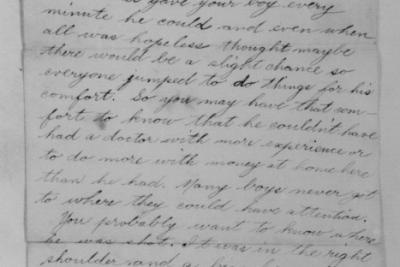 gave your boy every
minute he could and even when
all was hopeless thought maybe
there would be a slight chance so
everyone jumped to do things for his
comfort. So you may have that com-
fort to know that he couldn't have
had a doctor with more experience or
to do more with money at home here
than he had. Many boys never got
to where they could have attention.
You probably want to know where
he was shot. It was in the right
shoulder and a